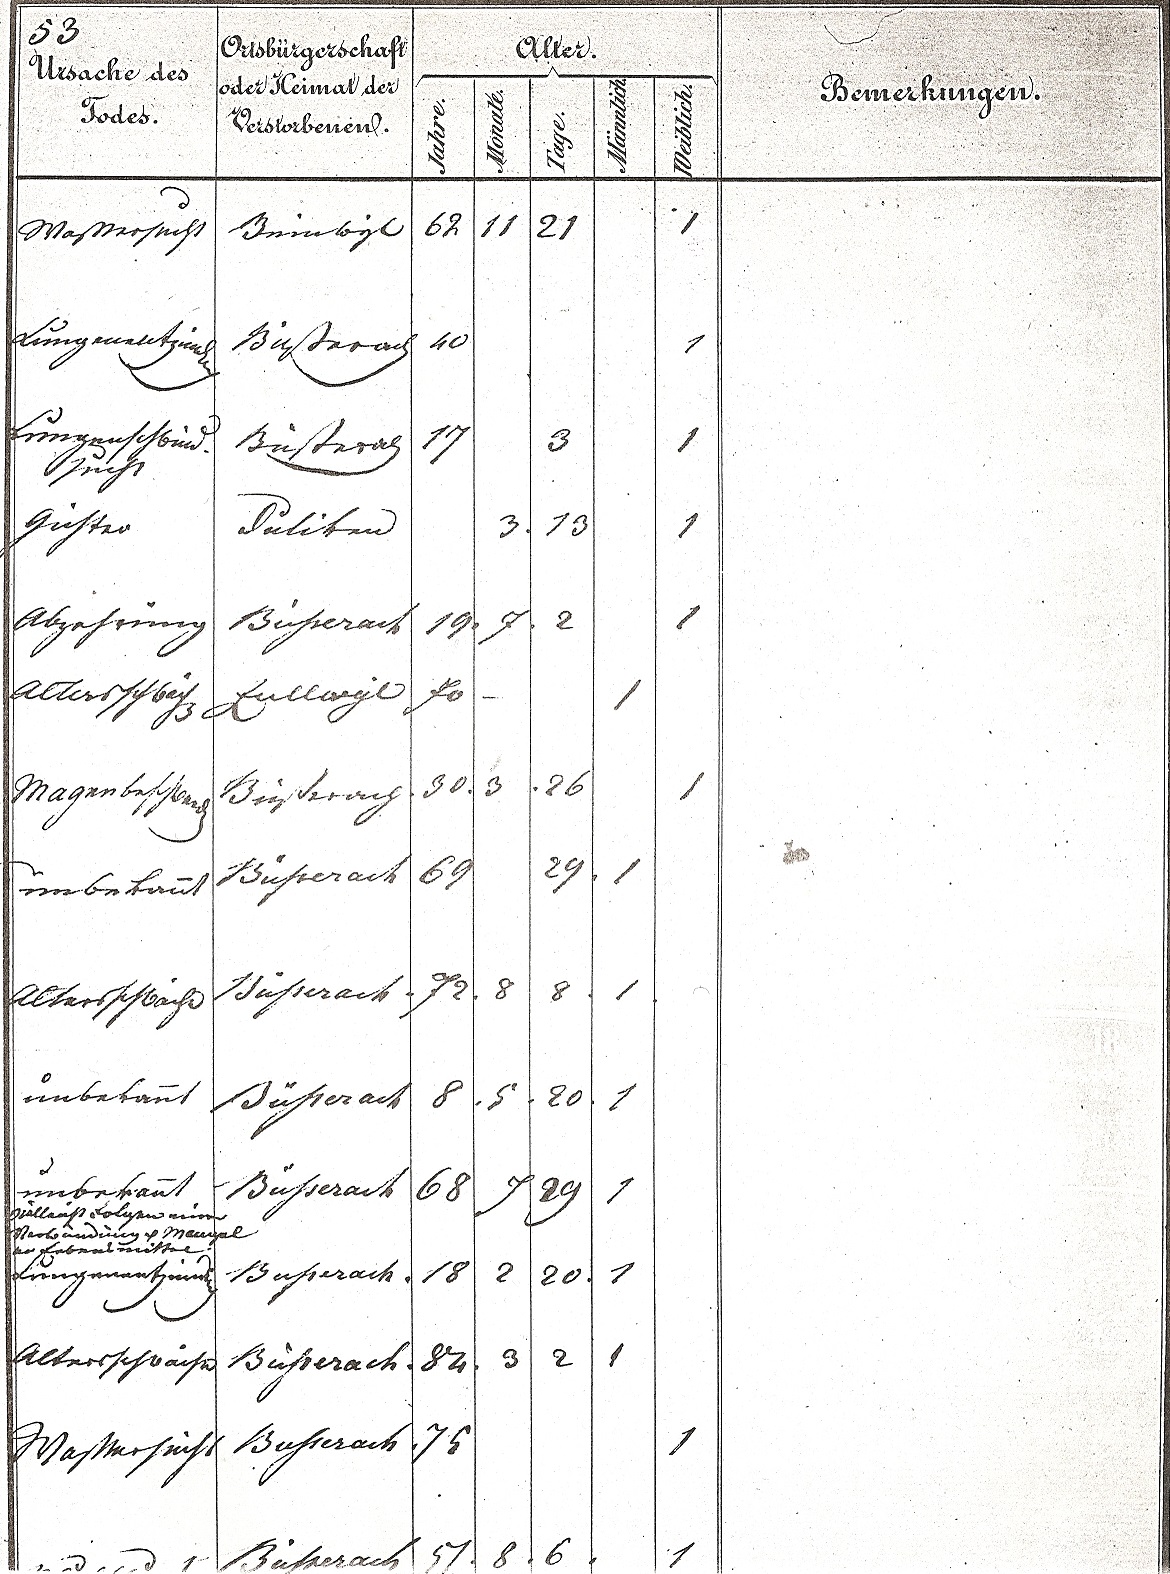 53
Ursache des Todes. | Ortsbürgerschaft oder Heimat der Verstorbenen. | Alter. Jahre. | Monate. | Tage. | Männlich. | Weiblich. | Bemerkungen.
Wassersucht Beinwyl 62 11 21 1
Lungenentzünd Büsserach 40 1
Lungenschwind-
sucht Büsserach 17 3 1
Gichter 3. 13 1
Abzehrung Büsserach 19. 7. 2 1
Altersschwäche Zullwyl 70 – 1
Magenbeschwerd Büsserach. 30. 3. 26 1
unbekannt Büsserach 69 29. 1
Altersschwäche Büsserach. 72. 8 8. 1
unbekannt Büsserach 8. 5. 20. 1
unbekannt Büsserach 68 7 29 1
vielleicht Folgen einer
& Mangel
an Lebensmittel.
Lungenentzünd Busserach. 18 2 20. 1
Altersschwäche Büsserach. 84. 3 2 1
Wassersucht Busserach. 75 1
Büsserach 51. 8. 6. 1